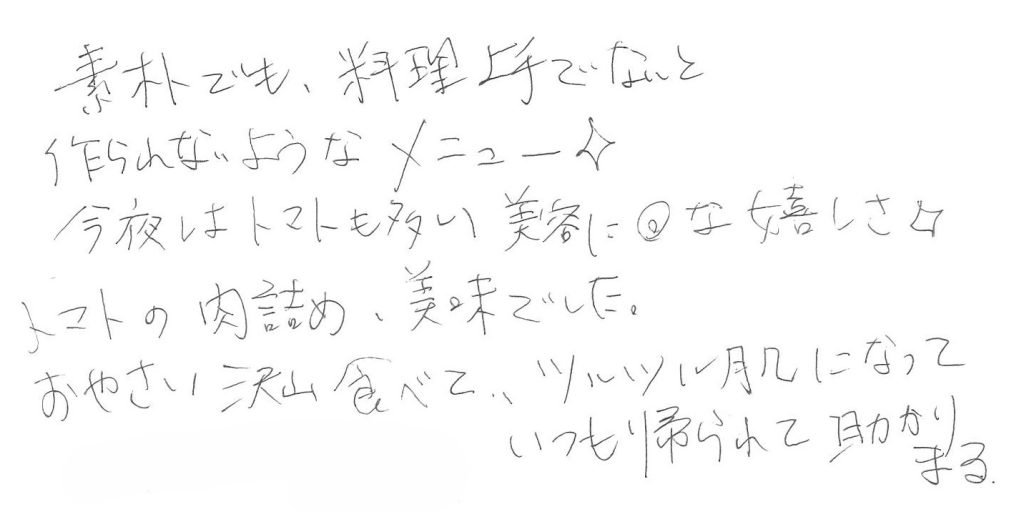 素朴でも、料理上手でないと
作られないようなメニュー✧
今夜はトマトも多い美容に◎な嬉しさ☆
トマトの肉詰め、美味でした。
おやさい沢山食べて、、ツルツル肌になって
いつも帰られて助かり
まる.